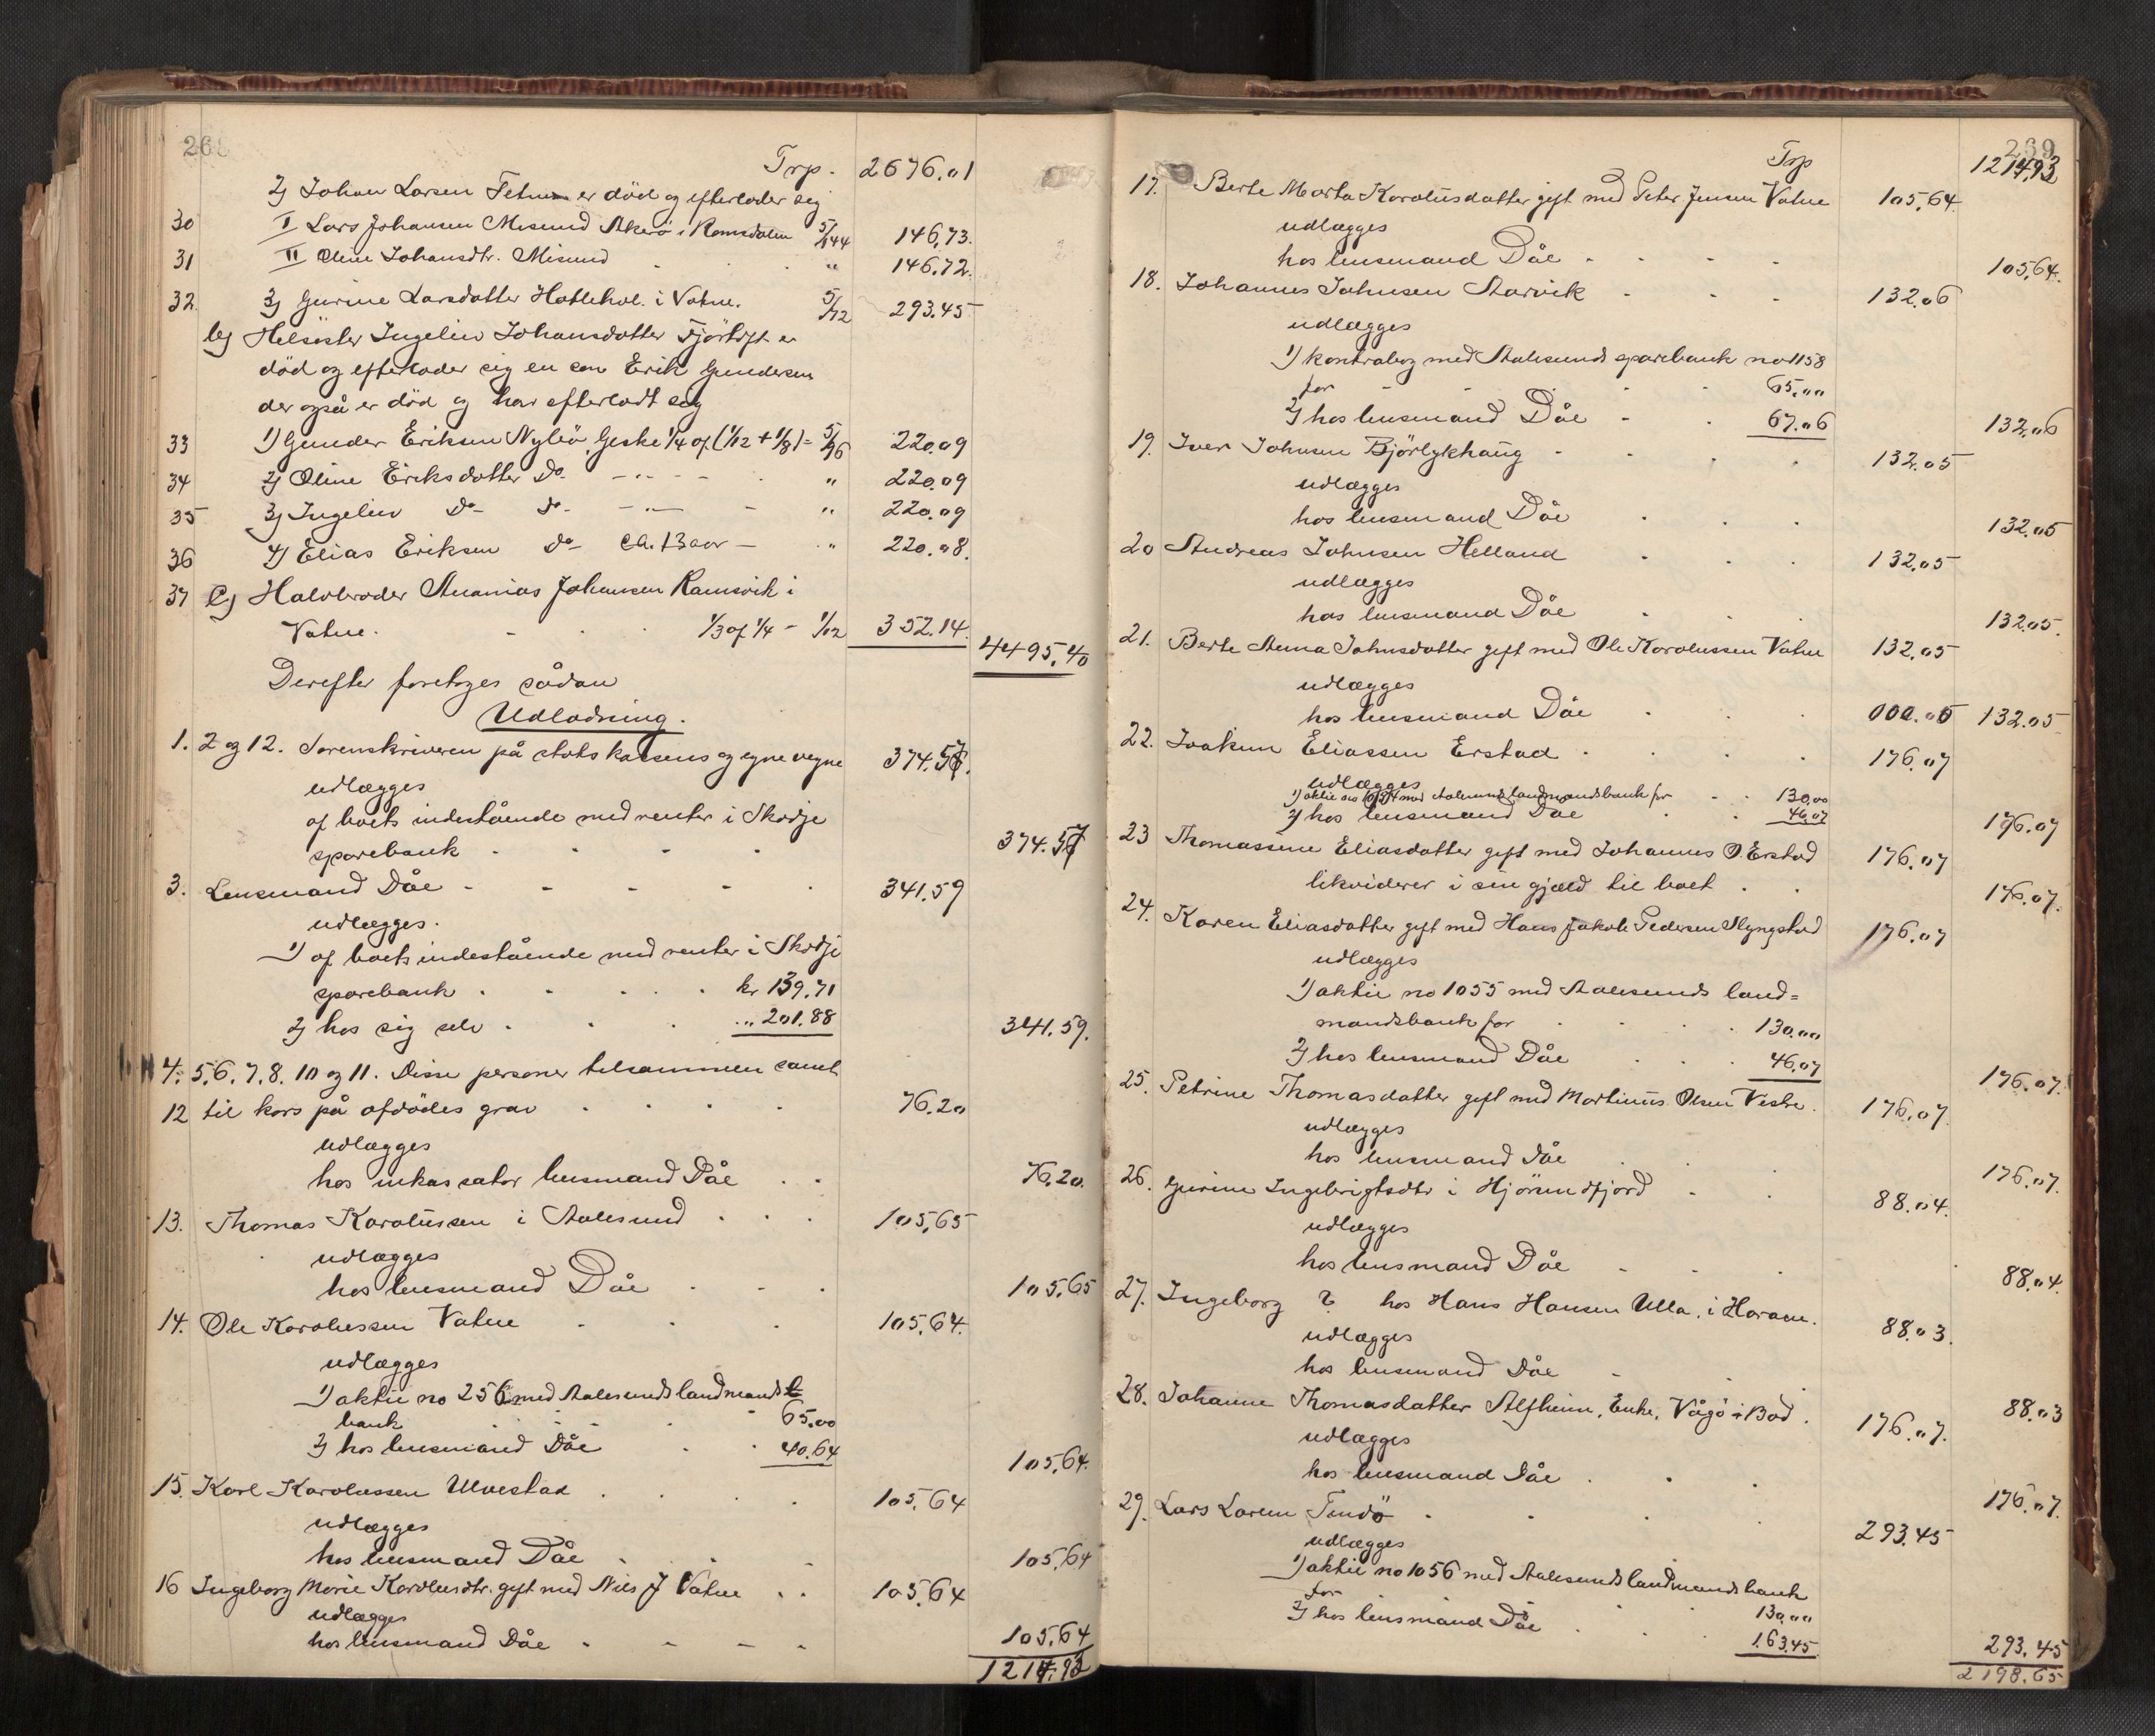 268
Trp. 2676.01
2) Johan Larsen er død og efterlader sig
30 I Lars Johansen Misund Akerø i Romsdalen 5/144 146,73.
31 II Oline Johansdtr. Misund " 146.72.
32 3) Gurine Larsdatter i Vatne. 5/72 293.45
b) Helsøster Ingeliv Johansdotter Fjørtoft er
død og efterlader sig en søn Erik Gundersen
der også er død og har efterladt sig
33 1) Gunder Eriksen Giske 1/4 af (1/12 + 1/8) = 5/96 220.09
34 2) Oline Eriksdotter Do. - " - - " 220.09
35 3) Ingeliv Do - do - - " - - " 220.09
36 4) Elias Eriksen do ca. 13 aar - " 220.08.
37 c) Halvbroder Ananias Johansen Ramsvik i
Vatne. - 1/3 af 1/4 - 1/12 352.14. 4495,40
Derefter foretages sådan
Udlodning.
1. 2 og 12. Sorenskriveren på statskassens og egne vegne 374.57.
udlægges
af boets indestående med renter i Skodje
sparebank - - - - 374.57
3. Lensmand Dåe - - - - 341.59
udlægges.
1) af boets indestående med renter i Skodje
sparebank . . . . . kr 139.71
2) hos sig selv . . . " 201.88 341.59.
4. 5. 6. 7. 8. 10 og 11. Disse personer tilsammen samt
12 til kors på afdødes grav . . . . 76.20
udlægges
hos inkassator lensmand Dåe . . 76,20.
13. Thomas Karolussen i Aalesund . . . 105,65
udlægges
hos lensmand Dåe . . . 105,65
14. Ole Karolussen Vatne . . . 105,64.
udlægges
1) aktie no 256 med Aalesunds landmands
bank 65.00
2) hos lensmand Dåe . . 40.64 105,64.
15. Karl Karolussen Ulvestad . . . . 105,64
udlægges
hos lensmand Dåe . . - 105,64
16 Ingeborg Marie Karolusdtr. gift med Nils J Vatne . . 105,64
udlægges
hos lensmand Dåe - - - - 105,64
1214.93
269
Trp 1214,93
17. Berte Marta Karolusdatter gift med Peter Jensen Vatne 105,64.
udlægges
hos lensmand Dåe - - - - 105,64.
18. Johannes Johnsen Aarvik - - - 132.06
udlægges
1) kontrabog med Aalesunds sparebank no 1158
for - - - - 65,00
2) hos lensmand Dåe - . 67.06 132.06
19. Iver Johnsen Bjørlykhaug - . . . 132.05
udlægges
hos lensmand Dåe . . . 132.05
20 Andreas Johnsen Helland . . . 132.05
udlægges
hos lensmand Dåe . . . 132.05.
21. Berte Anna Johnsdatter gift med Ole Karolussen Vatne 132.05
udlægges
hos lensmand Dåe . . . 000.00 132.05
22. Joakim Eliassen Erstad . . . . 176.07
udlægges
1) aktie no 1054 med Aalesunds landmandsbank for - . 130,00
2) hos lensmand Dåe . . 46.07 176.07
23 Thomassine Eliasdatter gift med Johannes O. Erstad 176.07
likviderer i sin gjæld til boet . . 176.07.
24. Karen Eliasdatter gift med Hans Jakob Pedersen Slyngstad 176.07
udlægges
1) aktie no 1055 med Aalesunds land=
mandsbank for . . . . 130.00
2) hos lensmand Dåe . . . 46,07 176.07.
25. Petrine Thomasdatter gift med Martinus Olsen Vestre. 176.07.
udlægges
hos lensmand Dåe . . 176.07.
26. Gurine Ingebrigtsdtr i Hjørundfjord - . 88.04.
udlægges
hos lensmand Dåe - - - 88.04.
27. Ingeborg ? hos Hans Hansen Ulla, i Haram. 88.03.
udlægges
hos lensmand Dåe - . . 88,03
28. Johanne Thomasdatter Alfheim, Enke, Vågø i Bod . 176.07.
udlægges
hos lensmand Dåe . . . 176.07.
29. Lars Larsen . . . . 293.45
udlægges
1) aktie no 1056 med Aalesunds landmandsbank
for 130,00
2) hos lensmand Dåe . . . 163.45 293.45
2198.65